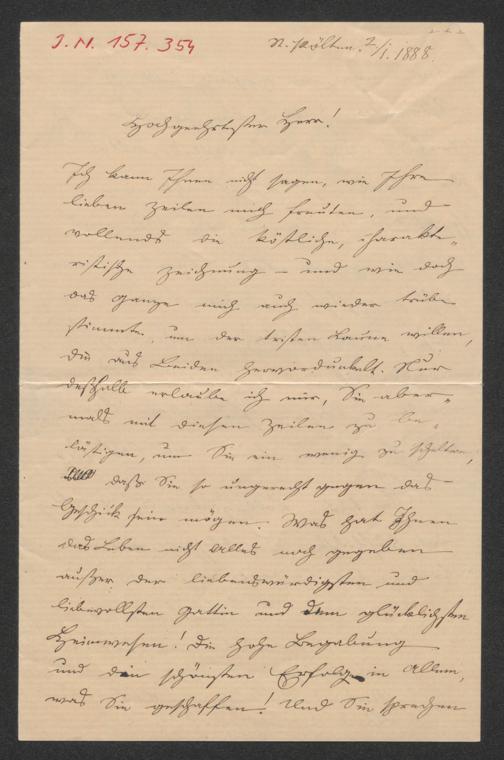 J. N. 157.354
St. Pölten. 2/1. 1888.
Hochgeehrtester Herr!
Ich kann Ihnen nicht sagen, wie Ihre
lieben Zeilen mich freuten, und
vollends die köstliche, charakte-
ristische Zeichnung – und wie doch
das Ganze mich auch wieder trübe
stimmte, um der tristen Laune willen,
die aus Beiden hervordunkelt. Nur
deßhalb erlaube ich mir, Sie aber-
mals mit diesen Zeilen zu be-
lästigen, um Sie ein wenig zu schelten,
daß Sie so ungerecht gegen das
Geschick sein mögen. Was hat Ihnen
das Leben nicht Alles noch gegeben
außer der liebenswürdigsten und
liebevollsten Gattin und dem glücklichsten
Heimwesen! Die hohe Begabung
und den schönsten Erfolg in Allem,
was Sie geschaffen! Und Sie sprechen